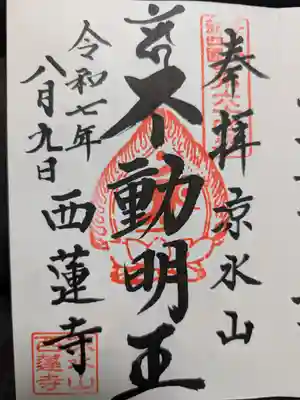 奉拝 京水山
不動明王
西蓮寺
令和七年
八月九日
京水山
西蓮寺